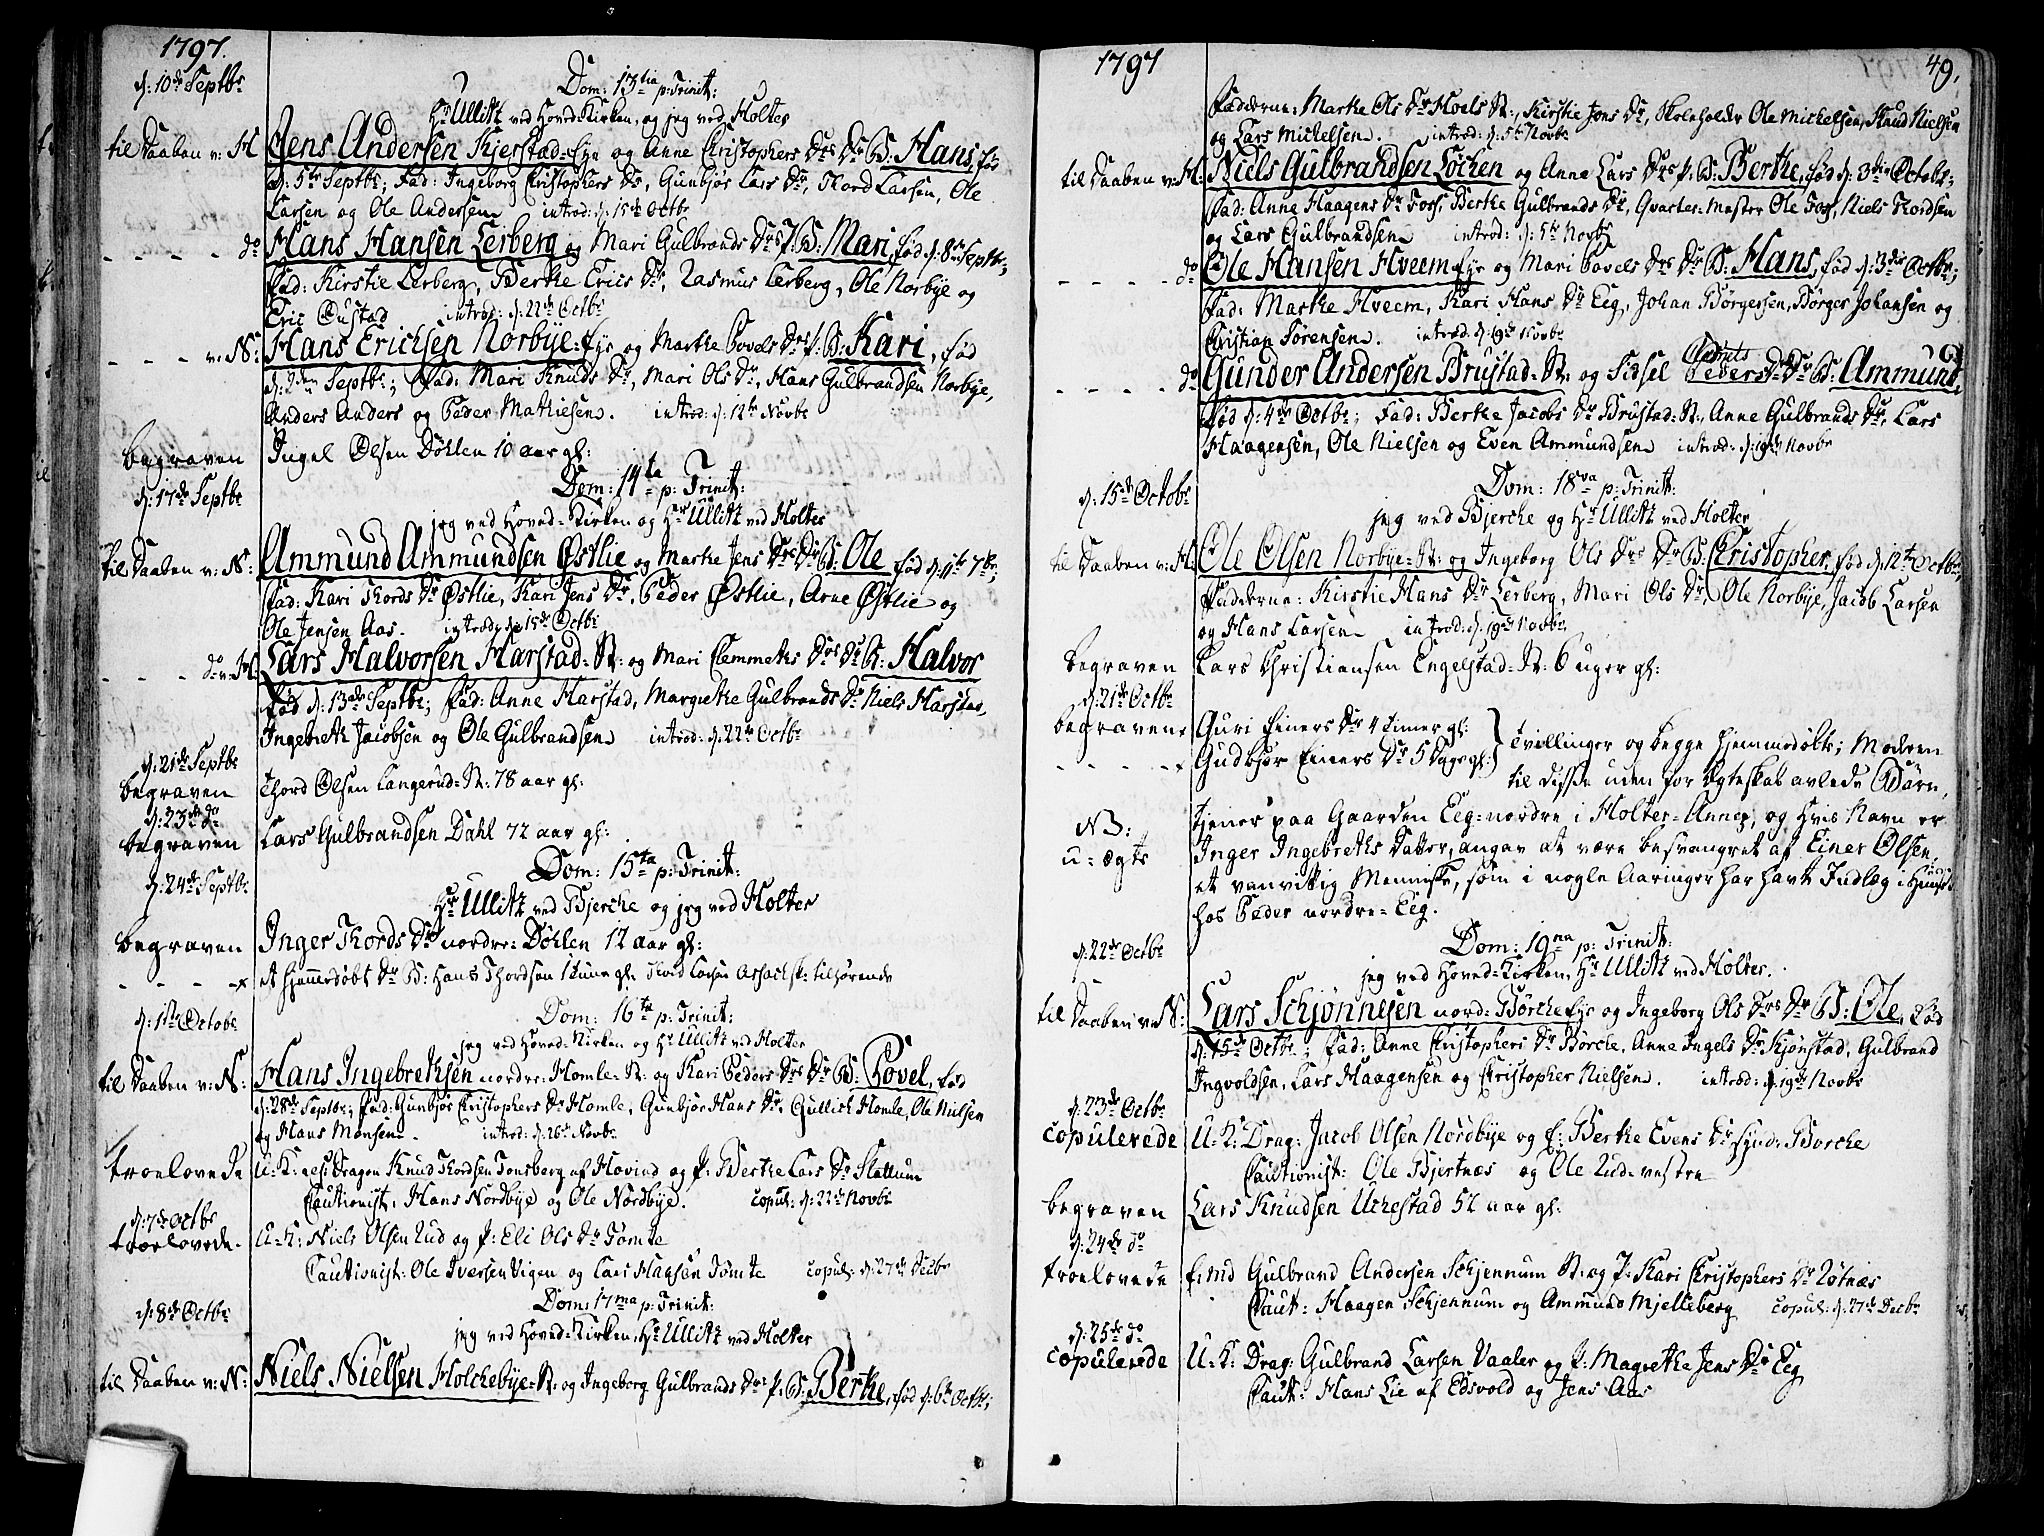 1797.
d: 10de Septbr
Dom: 13tia p: Trinit:
Hr Ullitz ved Hoved-Kirken, og jeg ved Holter
til Daaben v: H Jens Andersen Kjerstad-Eye og Anne Christophers Dr Dr B: Hans, fød
d: 5te Septbr; Fad: Ingeborg Christophers Dr, Gunbjør Lars Dr, Thord Larsen, Ole
Larsen og Ole Andersen introd: d: 15de Octbr
- - - - do Hans Hansen Lerberg og Mari Gulbrands Drs P: B: Mari, fød d: 8de Septbr;
Fad: Kirstie Lerberg, Berthe Erics Dr, Rasmus Lerberg, Ole Norbye og
Eric Oustad introd: d: 22de Octbr
- - - v: N: Hans Erichsen Norbye-Eye og Marthe Povels Drs P: B: Kari, fød
d: 2den Septbr; Fad: Mari Knuds Dr, Mari Ols Dr, Hans Gulbrandsen Norbye,
Anders Anders og Peder Mathiesen. introd: d: 12te Novbr
begraven Ingel Olsen Døhlen 10 aar gl:
d: 17de Septbr
Dom: 14ta p: Trinit:
jeg ved Hoved-Kirken og Hr Ullitz ved Holter
til Daaben v: N: Ammund Ammundsen Østlie og Marthe Jens Drs Dr B: Ole, fød d: 11te 7br;
Fad: Kari Thords Dr Østlie, Kari Jens Dr, Peder Østlie, Arne Østlie og
Ole Jensen Aas. introd: d: 15de Octbr
- - - do v: H. Lars Halvorsen Harstad-St: og Mari Clemmeths Drs Dr B: Halvor
fød d: 13de Septbr; Fad: Anne Harstad, Margrethe Gulbrands Dr Niels Harstad,
Ingebreth Jacobsen og Ole Gulbrandsen introd: d: 22de Octbr
d: 21de Septbr
begraven Thord Olsen Langerud-St: 78 aar gl:
d: 23de do
begraven Lars Gulbrandsen Dahl 72 aar gl:
Dom: 15ta p: Trinit:
d: 24de Septbr
Hr Ullitz ved Bjerche og jeg ved Holter
begraven Inger Thords Dr nordre-Døhlen 12 aar gl:
- - - - Et hjemmedøbt Dr B: Hans Thordsen 1 time gl: Thord Larsen tilhørende
d: 1ste Octobr
Dom: 16ta p: Trinit:
jeg ved Hoved-Kirken og Hr Ullitz ved Holter
til Daaben v: N: Hans Ingebrethsen nordre-Homle-St: og Kari Peders Drs Dr B: Povel, fød
d: 28de Septbr; Fad: Gunbjør Christophers Dr Homle, Gunbjør Hans Dr, Gullich Homle, Ole Nielsen
og Hans Monsen. introd: d: 26de Novbr
troelovede U: K: Dragon Knud Thordsen Tonsberg af Hovind og P: Berthe Lars Dr Stallum
Cautionist: Hans Nordbye og Ole Nordbye. copul: d: 22de Novbr
d: 7de Octbr
troelovede U: K: Niels Olsen Rud og P: Eli Ols Dr Tømte
Cautionist: Ole Iversen Vigen og Lars Hansen Tømte copul: d: 27de Decbr
d: 8de Octbr
Dom: 17ma p: Trinit:
jeg ved Hoved-Kirken, Hr Ullitz ved Holter
til Daaben v: N: Niels Nielsen Holchebye-St: og Ingeborg Gulbrands Drs P: B: Berthe, fød d: 6te Octbr;
1797
49.
Fadderne: Marthe Ols Dr Hoels St:, Kirstie Jens Dr, Skoleholder Ole Michelsen, Knud Nielsen
og Lars Michelsen. introd: d: 5te Novbr
til Daaben v: H: Niels Gulbrandsen Løchen og Anne Lars Drs P: B: Berthe, fød d: 3die Octobr;
Fad: Anne Haagens Dr Foss, Berthe Gulbrands Dr, Qvarteer-Mester Ole Foss, Niels Thordsen
og Lars Gulbrandsen introd: d: 5te Novbr
- - - - do Ole Hansen Hveem-Eye og Mari Povels Drs Dr B: Hans, fød d: 3die Octbr;
Fad: Marthe Hveem, Kari Hans Dr Eeg, Johan Børgersen, Børger Johansen og
Christian Sørensen. introd: d: 19de Novbr
- - - - do Gunder Andersen Brustad-St: og Sidsel Peders Drs Dr B: Ammund,
fød d: 4de Octbr; Fad: Berthe Jacobs Dr Brustad-St:, Anne Gulbrands Dr, Lars
Haagensen, Ole Nielsen og Even Ammundsen introd: d: 19de Novbr
d: 15de Octobr
Dom: 18va p: Trinit:
jeg ved Bjerche og Hr Ullitz ved Holter
til Daaben v: H: Ole Olsen Norbye-St: og Ingeborg Ols Drs Dr B: Christopher, fød d: 12te Octbr;
Fadderne: Kirstie Hans Dr Lerberg, Mari Ols Dr, Ole Norbye, Jacob Larsen
og Hans Larsen introd: d: 19de Novbr
begraven Lars Christiansen Engelstad-St: 6 uger gl:
d: 21de Octbr
begravene Guri Einers Dr 4 Timer gl:
- - - - - Gudbjør Einers Dr 5 Dage gl: } Tvillinger og begge hjemmedøbte; Moderen
til disse uden for Ægteskab avlede Børn,
NB: tjener paa Gaarden Eeg-nordre i Holter-Annex, og hvis Navn er
u-ægte Inger Ingebreths Datter, angav at være besvangret af Einer Olsen,
et vanvittig Menniske, som i nogle Aaringer har havt Indlæg i Huuset
hos Peder nordre-Eeg.
d: 22de Octbr
Dom: 19na p: Trinit:
jeg ved Hoved-Kirken, Hr Ullitz ved Holter.
til Daaben v: N: Lars Schjønnesen nord-Børche Eye og Ingeborg Ols Drs Dr B: Ole, fød
d: 15de Octbr; Fad: Anne Christophers Dr Børche, Anne Ingels Dr Kjønstad, Gulbrand
Ingvoldsen, Lars Haagensen og Christopher Nielsen. introd: d: 19de Novbr
d: 23de Octbr
copulerede U: K: Drag: Jacob Olsen Nordbye og P: Berthe Evens Dr synd: Borche
Cautionist: Ole Bjertnæs og Ole Rud-vestre
begraven Lars Knudsen Uthestad 52 aar gl:
d: 24de do
troelovede E: md Gulbrand Andersen Schjennum St: og P: Kari Christophers Dr Røtnæs
Caut: Haagen Schjennum og Ammund Mjelleberg copul: d: 27de Decbr
d: 25de do
copulerede U: K: Drag: Gulbrand Larsen Vaaler og P: Magrethe Jens Dr Eeg
Caut: Hans Lie af Edsvold og Jens Aas